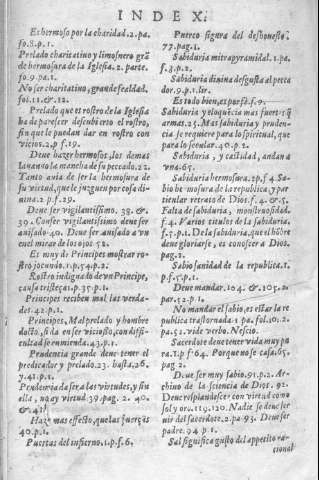 INDEX.
Es hermoso por la charidad. 2. pa.
fo. 8. p. 1.
Prelado charitatiuo y limosnero grã
de hermosura de la Iglesia. 2. parte.
fo. 9. pa. 1.
No ser charitatiuo, grande fealdad.
fol. 11. & 12.
Prelado que es rostro de la Iglesia
ha de parecer descubierto el rostro,
sin que le puedan dar en rostro con
vicios. 2. p f. 19.
Deue hazer hermosos, los demas
lauando la mancha de su pecado. 22.
Tanto auia de ser la hermosura de
su virtud, que le juzguen por cosa di-
uina. 2 p. f. 29.
Deue ser vigilantissimo. 38. &
39. Conser vigilantissimo deue ser
auisado. 40. Deue ser auisado a vn
en el mirar de los ojos 52.
Es muy de Principes mostrar ro-
stro jocundo. 1. p. 54. p. 2.
Rostro indignado de vn Principe,
causa tristeças. p. 35. p. 1.
Principes reciben mal las verda-
des. 42. p. 1.
Principes, Mal prelado y hombre
docto, si da en ser vicioso, con diffi-
cultad se enmienda. 43. p. 1.
Prudencia grande deue tener el
predicador y prelado. 23. hasta. 26.
y. 41. p. 1.
Prudencia da ser a las virtudes, y sin
ella, no ay virtud 39. pag. 2. 40.
& 41.
Haze mas effecto, que las fuerças
40. p. 1.
Puertas del infierno. 1. p. f. 6.
Puerco figura del deshonesto.
77. pag. 1.
Sabiduria mitra pyramidal. 1. pa.
f. 3. p. 2.
Sabiduria diuina desgusta al peca
dor. 9. p. 1. lir.
Es todo bien, es par sè. f. 9.
Sabiduria y eloquẽcia mas fuerte q̃
armas. 25. Mas sabiduria y pruden-
cia se requiere para lo spiritual, que
para lo secular. 40. p. 2.
Sabiduria, y castidad, andan a
vna. 65.
Sabiduria hermosura. 2 p, f 4. Sa-
bio hermosura de la republica, y par
ticular retrato de Dios. f. 4. & 5.
Falta de sabiduria, monstruosidad.
f. 4. Varios titulos de la sabiduria.
f. 5. p. 1. De la sabiduria, que el hõbre
deue gloriarse, es conoscer a Dios.
pag. 2.
Sabio sanidad de la republica. 1.
p. f. 5. p. 1.
Deue mandar. 104. & 105. 2.
par. 52. p 1.
No mandar el sabio, es estar la re
publica trastornada 1 pa, fol. 10. 2.
pa. 51. vide verbo. Nescio.
Sacerdote deue tener vida muy pu
ra. 1. p f 64. Porque no se casa. 65.
pag 2
Deue ser muy sabio. 91. p. 2. Ar-
chiuo de la sciencia de Dios. 92.
Deue resplandescer con virtud como
sol y oro. 119. 120. Nadie se deue ser
uir del sacerdote. 2. pa. 93. Deue ser
padre. 94 p 1.
Sal significa gusto del appetito ra-
cional